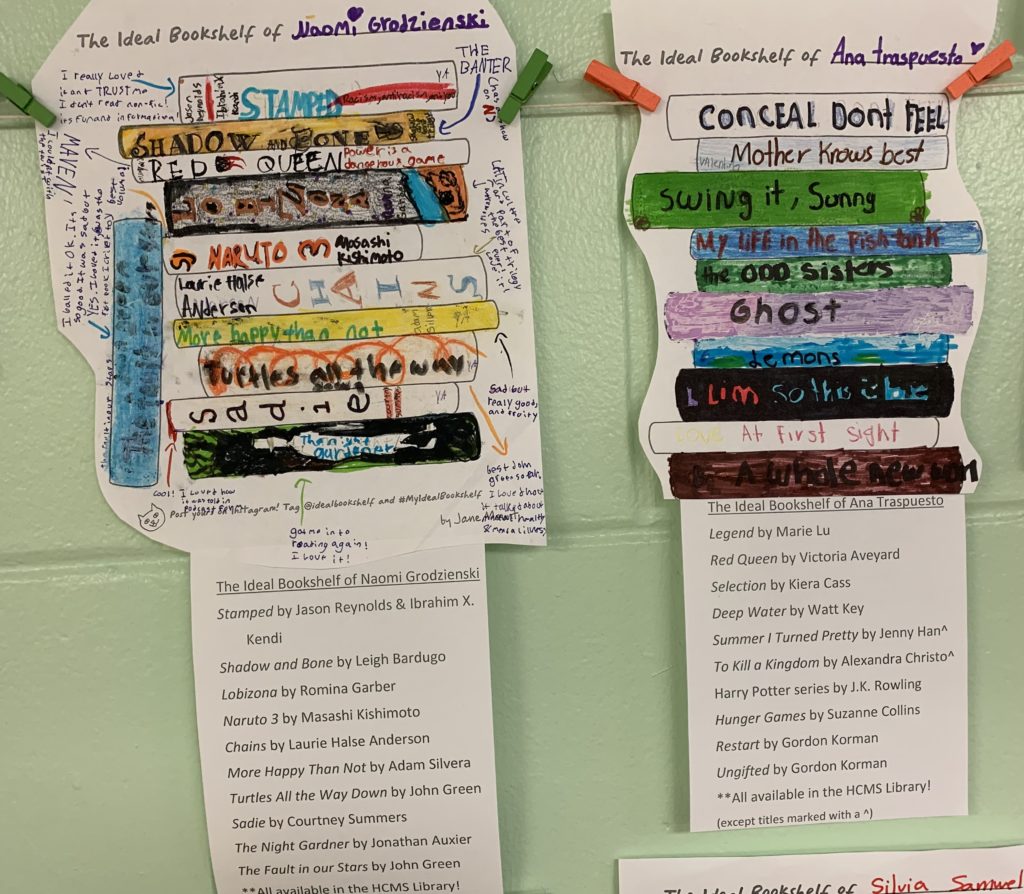 The Ideal Bookshelf of Naomi Grodzienski
I really loved
it and TRUST me
I don't read non-fic!
its fun and informational
THE
BANTER
Jason
Reynolds
STAMPED
YA
SHADOW AND BONE
RED QUEEN
Power is a
dangerous game
LOBIZONA
NARUTO 3
Masashi
Kishimoto
Laurie Halse
Anderson
CHAINS
More happy than not
Turtles all the way
down
YA
sadie
YA
The night
gardener
Sad but
realy good,
and fruity
best John
green so far.
I love how
it talked about
cool! I loved how
it was told in
got me into
reating again!
I love it!
Post your Instagram! Tag @idealbookshelf and #MyIdealBookshelf
by Jane
The Ideal Bookshelf of Naomi Grodzienski
Stamped by Jason Reynolds & Ibrahim X.
Kendi
Shadow and Bone by Leigh Bardugo
Lobizona by Romina Garber
Naruto 3 by Masashi Kishimoto
Chains by Laurie Halse Anderson
More Happy Than Not by Adam Silvera
Turtles All the Way Down by John Green
Sadie by Courtney Summers
The Night Gardner by Jonathan Auxier
The Fault in our Stars by John Green
**All available in the HCMS Library!
The Ideal Bookshelf of Ana traspuesto
CONCEAL Dont FEEL
Mother Knows best
Swing it, Sunny
My Life in the Fish tank
the ODD SISters
Ghost
Lemons
LIM So this is love
Love At First Sight
A whole new
The Ideal Bookshelf of Ana Traspuesto
Legend by Marie Lu
Red Queen by Victoria Aveyard
Selection by Kiera Cass
Deep Water by Watt Key
Summer I Turned Pretty by Jenny Han^
To Kill a Kingdom by Alexandra Christo^
Harry Potter series by J.K. Rowling
Hunger Games by Suzanne Collins
Restart by Gordon Korman
Ungifted by Gordon Korman
**All available in the HCMS Library!
(except titles marked with a ^)
The Ideal Bookshelf of Silvia Samuel